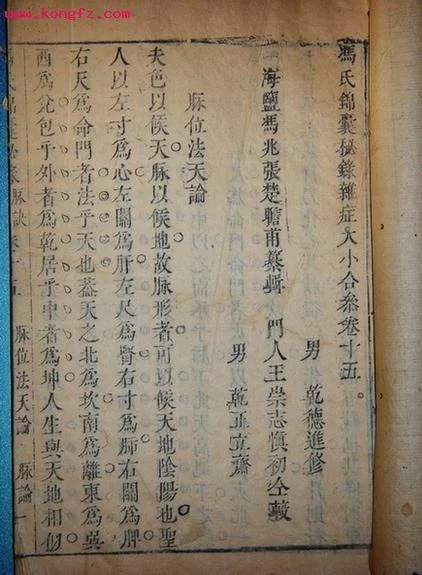 www.kongfz.com
馮氏錦囊秘錄雜症大小合參卷十五
海鹽馮兆張楚瞻甫纂輯
門人王崇志慎初仝較
男 乾德進修
男 乾正立齋
脉位法天論
夫色以候天脉以候地故脉形者可以候天地陰陽也聖
人以左寸爲心左關爲肝左尺爲腎右寸爲肺右關爲脾
右尺爲命門者法乎天也蓋天之北爲坎南爲離東爲巽
西爲兌包乎外者爲乾居乎中者爲坤人生與天地相似
脉位法天論 脉論 一